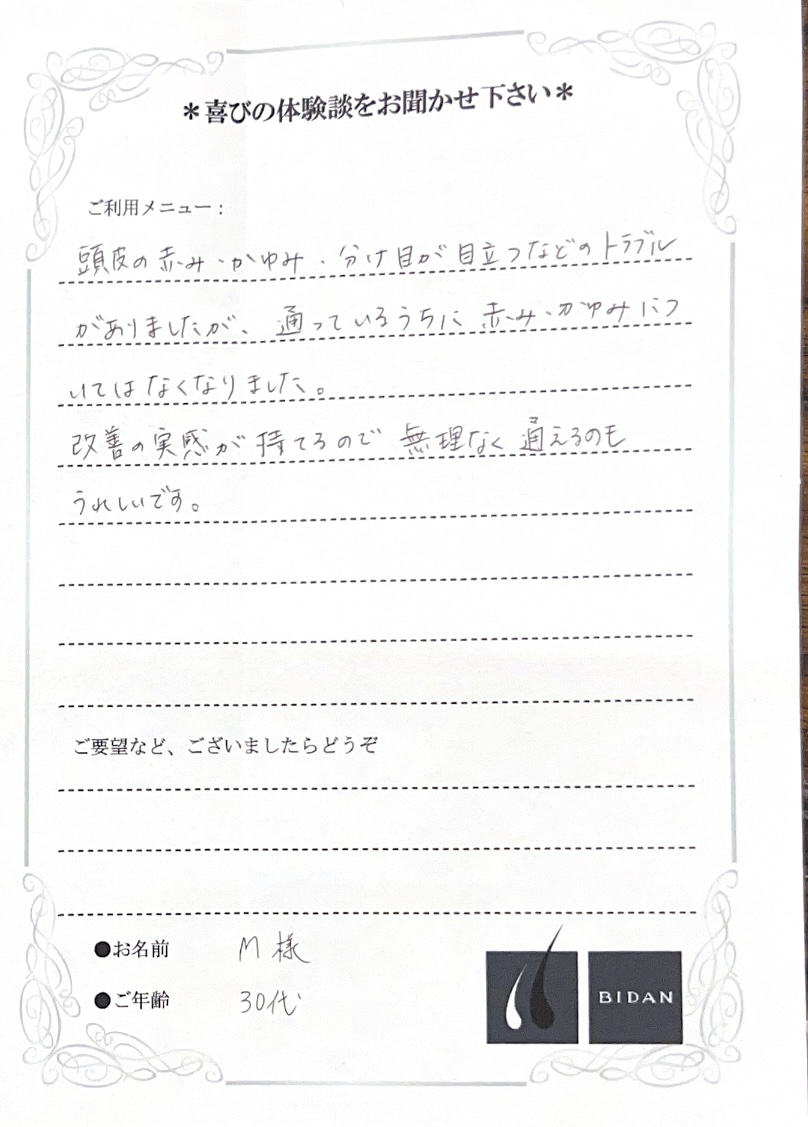 ＊喜びの体験談をお聞かせ下さい＊
ご利用メニュー：
頭皮の赤み・かゆみ・分け目が目立つなどのトラブル
がありましたが、通っているうちに赤み・かゆみにつ
いてはなくなりました。
改善の実感が持てるので無理なく通えるのも
うれしいです。
ご要望など、ございましたらどうぞ
●お名前 M様
●ご年齢 30代
BIDAN